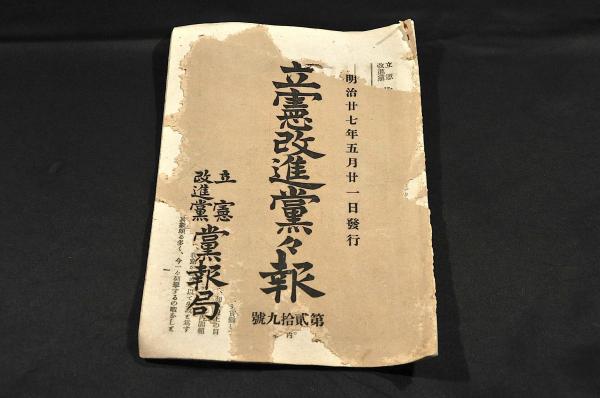 立憲
改進黨
明治廿七年五月廿一日發行
立憲改進黨々報
第貳拾九號
立憲
改進黨
黨報局